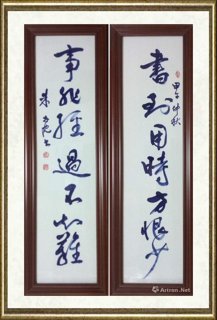 書到用時方恨少
甲午仲秋
事非經過不知難
Artron.Net